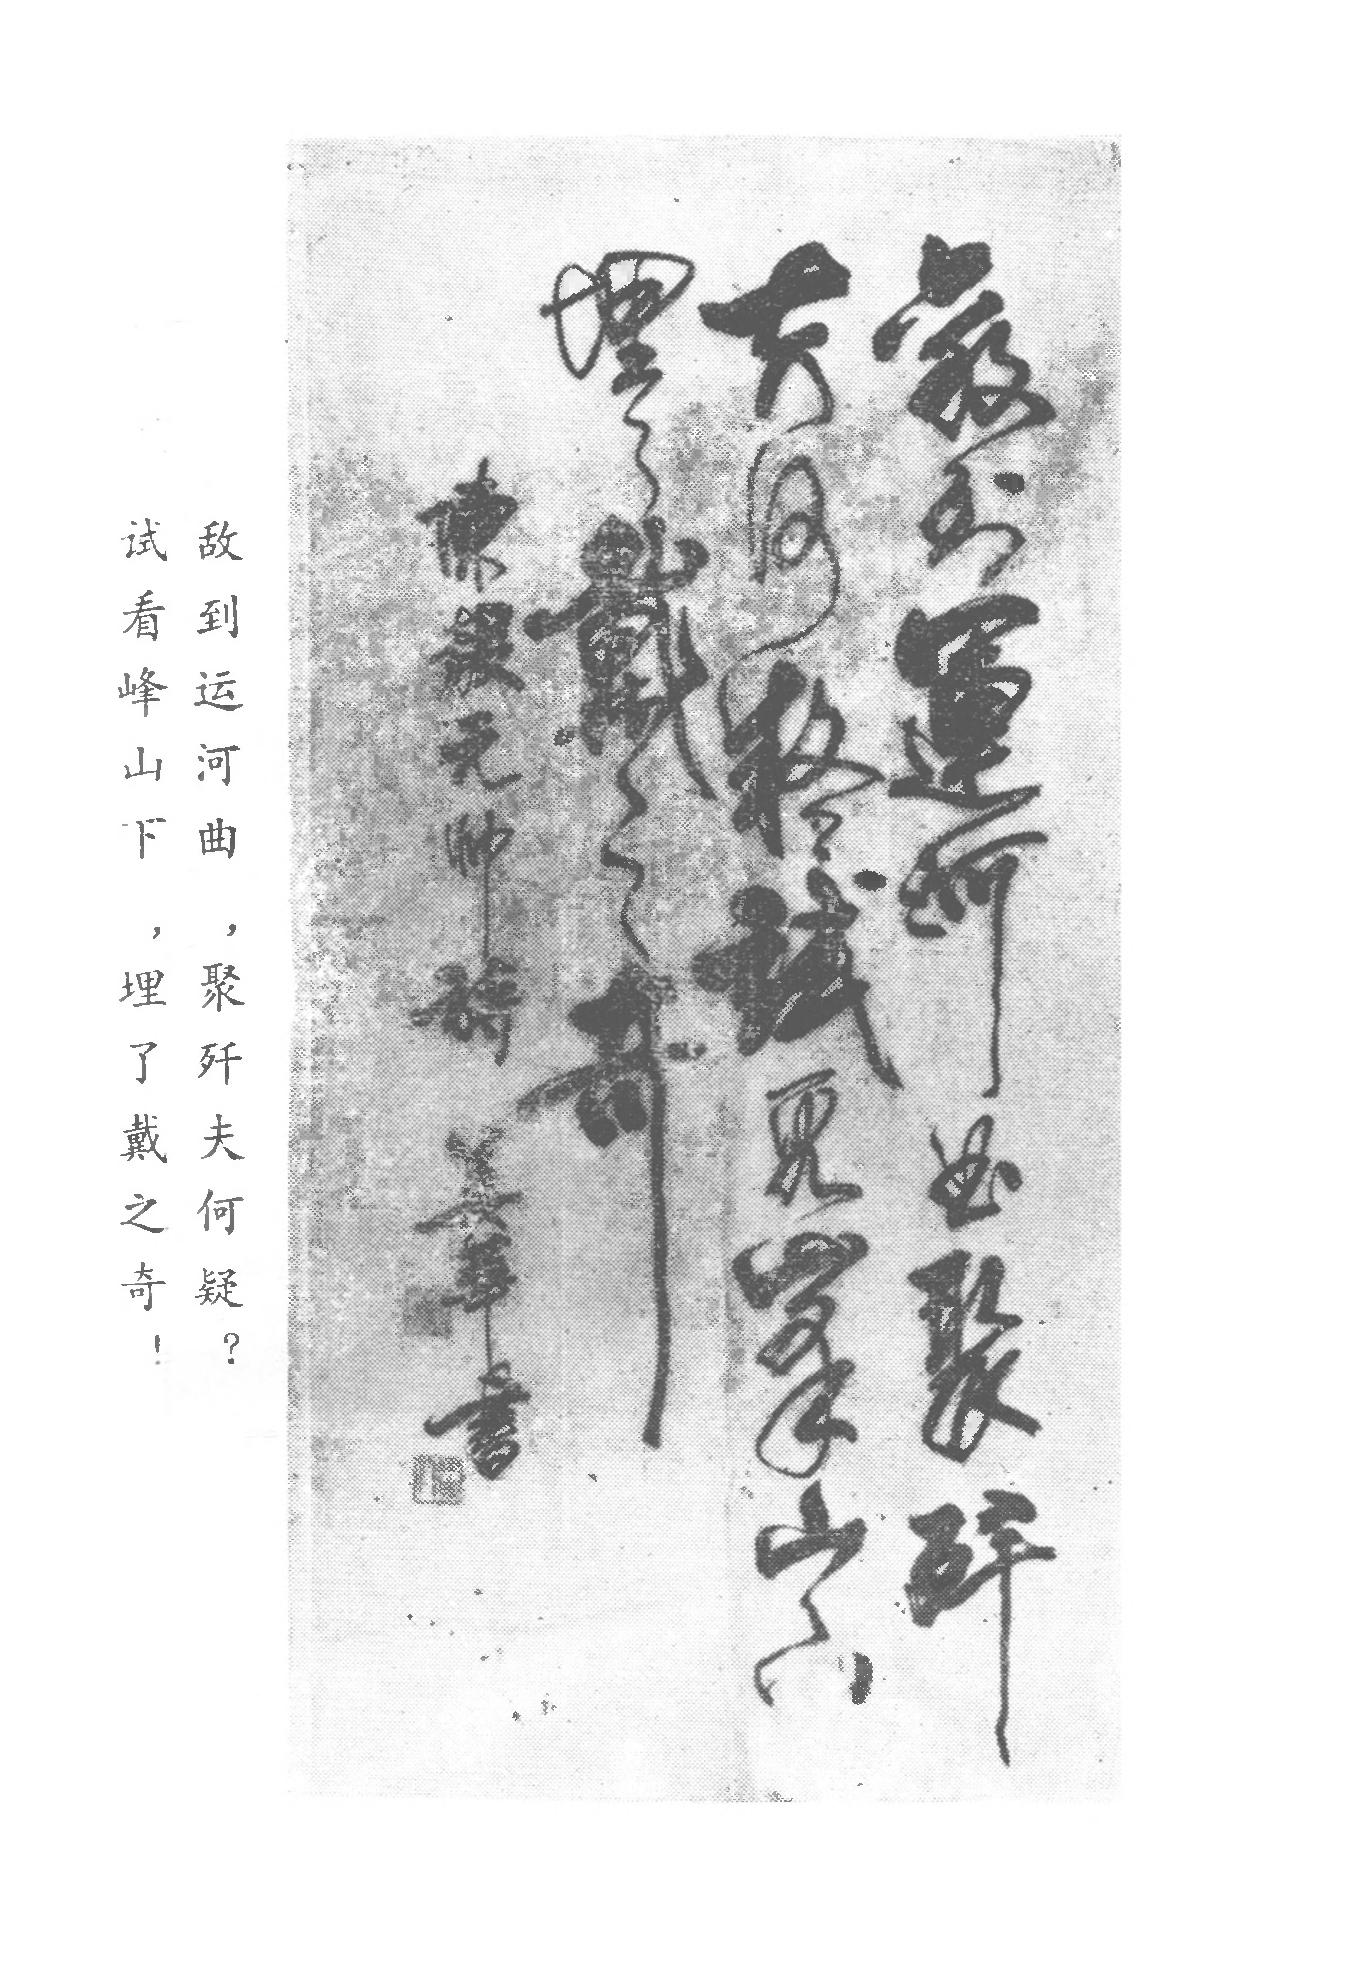 敵到運河曲聚歼
夫何疑試看峯山下
埋了戴之奇
陳毅元帥詩 書
敌到运河曲，聚歼夫何疑？
试看峰山下，埋了戴之奇！